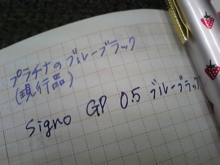 プラチナの ブルーブラック
(現行品)
Signo GP 0.5 ブルーブラック